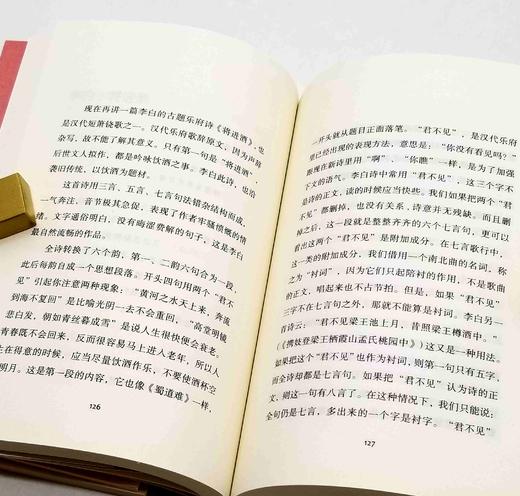 现在再讲一篇李白的古题乐府诗《将进酒》，也
是汉代短箫铙歌之一。汉代乐府歌辞原文，因为声辞
杂写，故不能了解其意义。只有第一句是“将进酒”，
后世文人拟作，都是吟咏饮酒之事。李白此诗，也沿
袭旧传统，以饮酒为题材。
这首诗用三言、五言、七言句法错杂结构而成，
一气奔注，音节极其急促，表现了作者牢骚愤慨的情
绪。文字通俗明白，没有晦涩费解的句子，这是李白
最自然流畅的作品。
全诗转换了六个韵，第一、二韵六句合为一段，
此后每韵自成一个思想段落。开头四句用两个“君不
见”引起你注意两种现象：“黄河之水天上来，奔流
到海不复回”是比喻光阴一去不会重回，“高堂明镜
悲白发，朝如青丝暮成雪”是说人生很快便会衰老。
青春既不会回来，反而很容易马上进入老年，所以人
生在得意的时候，应当尽量饮酒作乐，不要使酒杯空
对明月。这是第一段的内容，它也像《蜀道难》一样，
126
一开头就从题目正面落笔。“君不见”，是汉代乐府
里已经出现的表现方法，意思是：“你没有看见吗？”
一般现在新诗里用“啊”、“你瞧”一样，是为了加强
下文的语气。李白诗中常用“君不见”，这三个字不
是诗的正文，读的时候应当快些。我们如果把两个“君
不见”都删掉，也没有关系，诗意并无残缺。而且删
掉之后，这一段就是整整齐齐的六个七言句，更可以
看出这两个“君不见”是附加成分。在七言歌行中，
这一类的附加成分，我们借用一个南北曲的名词，称
之为“衬词”，因为它们只起陪衬的作用，不是歌曲
的正文，唱起来也不占节拍。但是，如果“君不见”
三字不在七言句之外，那就不能认为是衬词。李白另一
首诗云：“君不见梁王池上月，昔照梁王樽酒中。”
（《携妓登梁王栖霞山孟氏桃园中》）这又是一种用法。
如果把这个“君不见”也作为衬词，则第一句只有五字，
而全诗却都是七言句。如果把“君不见”认为诗的正
文，则这一句有八言了。在这种情况下，我们只能说：
全句仍是七言，多出来的一个字是衬字。“君不见”
127